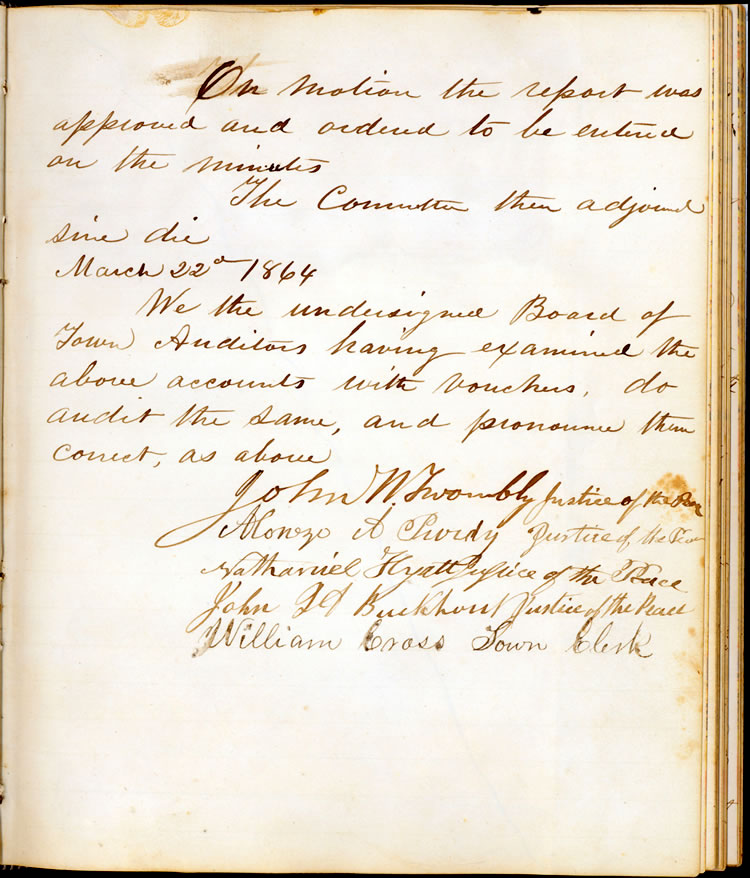 On motion the report was
approved and ordered to be entered
on the minutes
The Committee then adjourned
sine die
March 22d 1864
We the undersigned Board of
Town Auditors having examined the
above accounts with vouchers, do
audit the same, and pronounce them
correct, as above
John W. Twombly Justice of the Peace
Alonzo A Purdy Justice of the Peace
Nathaniel Hyatt Justice of the Peace
John H Buckhout Justice of the Peace
William Cross Town Clerk